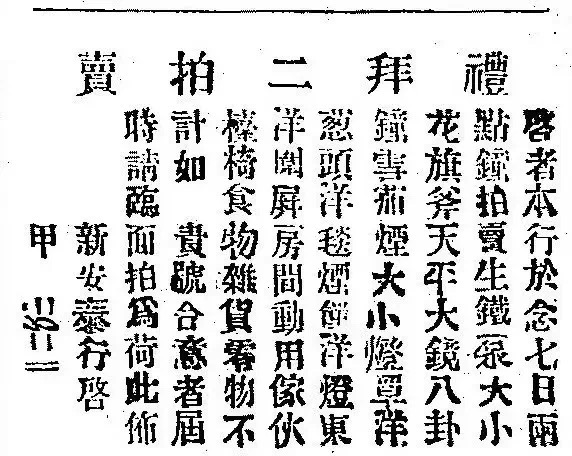 禮拜二拍賣
啓者本行於念七日兩
點鐘拍賣生鐵泵大小
花旗斧天平大鏡八卦
鐘雪茄煙大小燈罩洋
葱頭洋毯煙餠洋燈東
洋圍屏房間動用傢伙
椅食物雜貨零物不
計如　貴號合意者屆
時請臨而拍爲荷此佈
新安泰行啓
甲